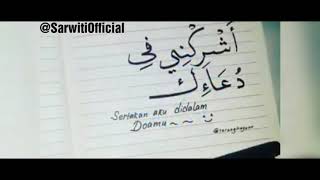 @SarwitiOfficial
أَشْرِكْنِي فِي
دُعَاءِكَ
Sertakan aku didalam
Doamu ~ ~